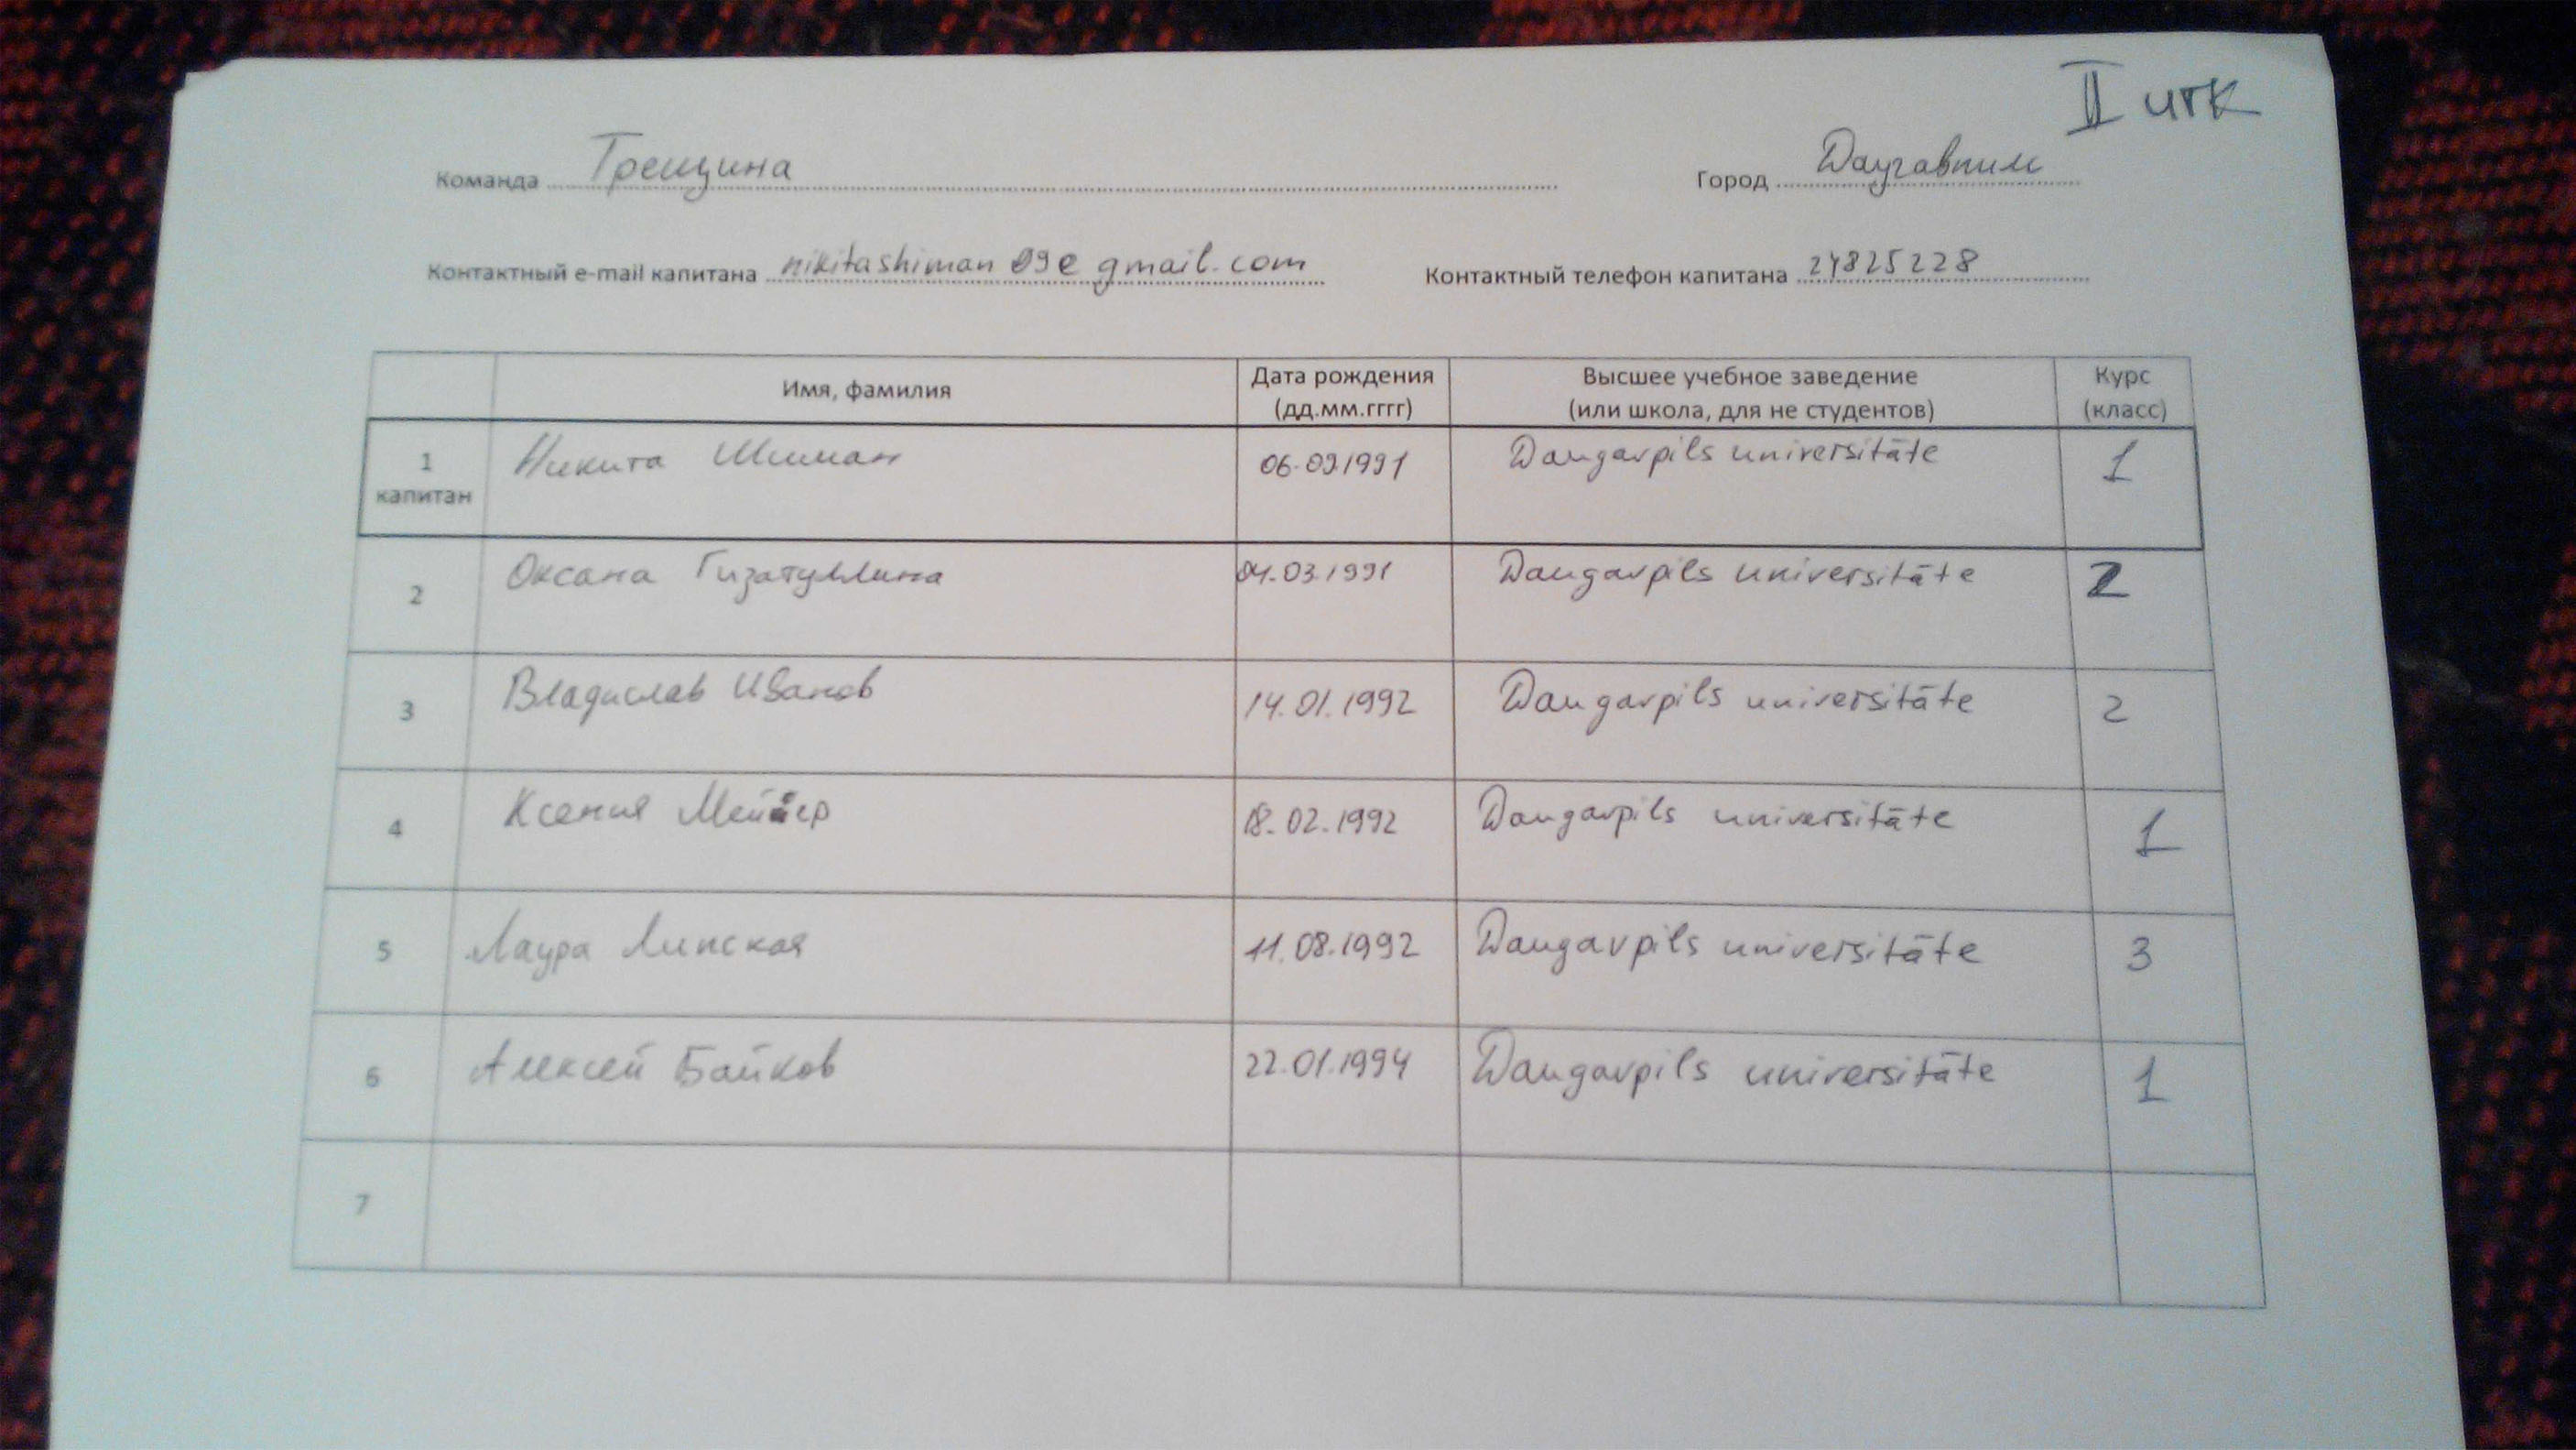 II ИГК
Команда Трещина Город Даугавпилс
Контактный e-mail капитана nikitashiman09@gmail.com Контактный телефон капитана 24825228
Имя, фамилия Дата рождения (дд.мм.гггг) Высшее учебное заведение (или школа, для не студентов) Курс (класс)
1 капитан Никита Шиман 06.09.1991 Daugavpils universitāte 1
2 Оксана Гизатуллина 04.03.1991 Daugavpils universitāte 2
3 Владислав Иванов 14.01.1992 Daugavpils universitāte 2
4 Ксения Мейер 18.02.1992 Daugavpils universitāte 1
5 Лаура Липская 11.08.1992 Daugavpils universitāte 3
6 Алексей Байков 22.01.1994 Daugavpils universitāte 1
7